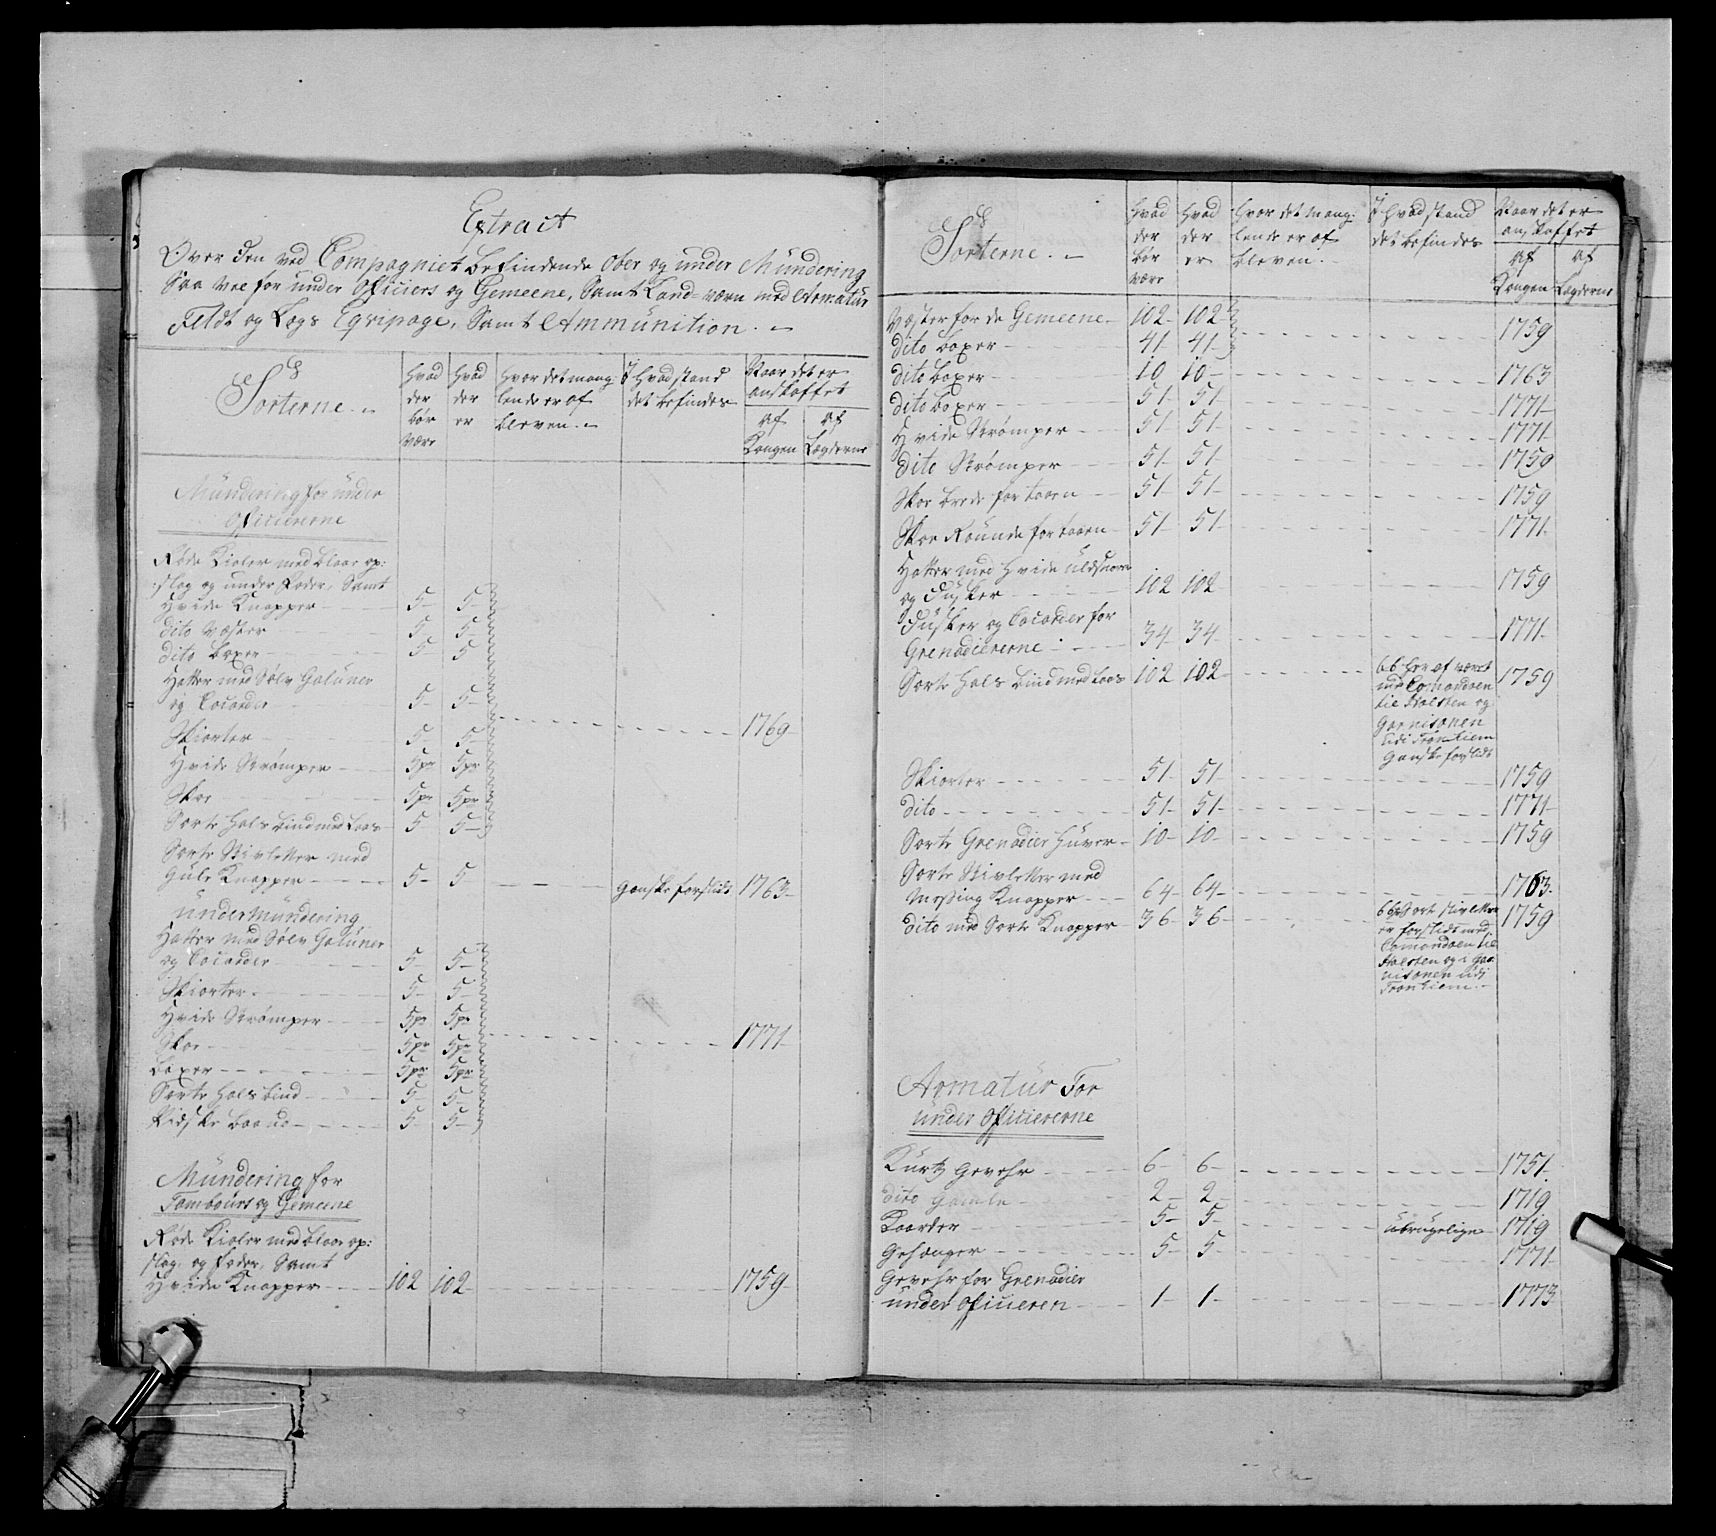 Extract
Over den ved Compagniet befindende Ober og under Mündering
Saa vel for under Officiers og Gemeene, Samt Land-værn med Armatur
Feldt og Legs Eqvipage, Samt Ammünition.
Sorterne. | Hvad der bör være | Hvad der er | Hvor det mang: lende er af bleven. | I Hvad stand det befindes | Naar det er anskaffet af Kongen | af Lægderne
Mündering for under
Officiererne
Røde Kioler med blaae op:
slag og under Foder, Samt
Hvide Knapper 5 5
dito Væster 5 5
dito boxer 5 5
Hatter med Sölv Galüner
og Cocarder 5 5
Skiorter 5 5 1769
Hvide Strömper 5pr 5pr
Skoe 5pr 5pr
Sorte Hals bind med Laas 5 5
Sorte Stivletter med
Güle Knapper 5 5 ganske forslidt 1763
under Mündering
Hatter med Sölv Galüner
og Cocarder 5 5
Skiorter 5 5
Hvide Strömper 5pr 5pr
Skoe 5pr 5pr 1771
boxer 5pr 5pr
Sorte Hals bind 5 5
Pidske baand 5 5
Mündering for
Tambours og Gemeene
Røde Kioler med blaae op:
slag, og foder, Samt
Hvide Knapper 102 102 1759
Sorterne. | Hvad der bör være | Hvad der er | Hvor det mang: lende er af bleven. | I Hvad stand det befindes | Naar det er anskaffet af Kongen | af Lægderne
Væster for de Gemeene 102 102
dito boxer 41 41 1759
dito boxer 10 10 1763
dito boxer 51 51 1771
Hvide Strömper 51 51 1771
dito Strömper 51 51 1759
Skoe brede for taaen 51 51 1759
Skoe Rounde for taaen 51 51 1771
Hatter med Hvide uldsnore
og Düsker 102 102 1759
Düsker og Cocarder for
Grenadiererne 34 34 1771
Sorte Hals bind med Laas 102 102 1759
66 her af været
med Comandoen
til Holsten og
Garnisonen
udi Tronhiem
Ganske forslidt
Skiorter 51 51 1759
dito 51 51 1771
Sorte Grenadier Hüver 10 10 1759
Sorte Stivletter med
Messing Knapper 64 64 1763
dito med Sorte Knapper 36 36 1759
66 Sorte Stivletter
er forslidt med
Comandoen til
Holsten og i Gar
nisonen udi
Tronhiem.
Armatür For
under Officiererne
Kürtz Gevehr 6 6 1751
dito Gamle 2 2 1719
Kaarder 5 5 übrügelige 1719
Gehænger 5 5 1771
Gevehr for Grenadier
under Officieren 1 1 1773